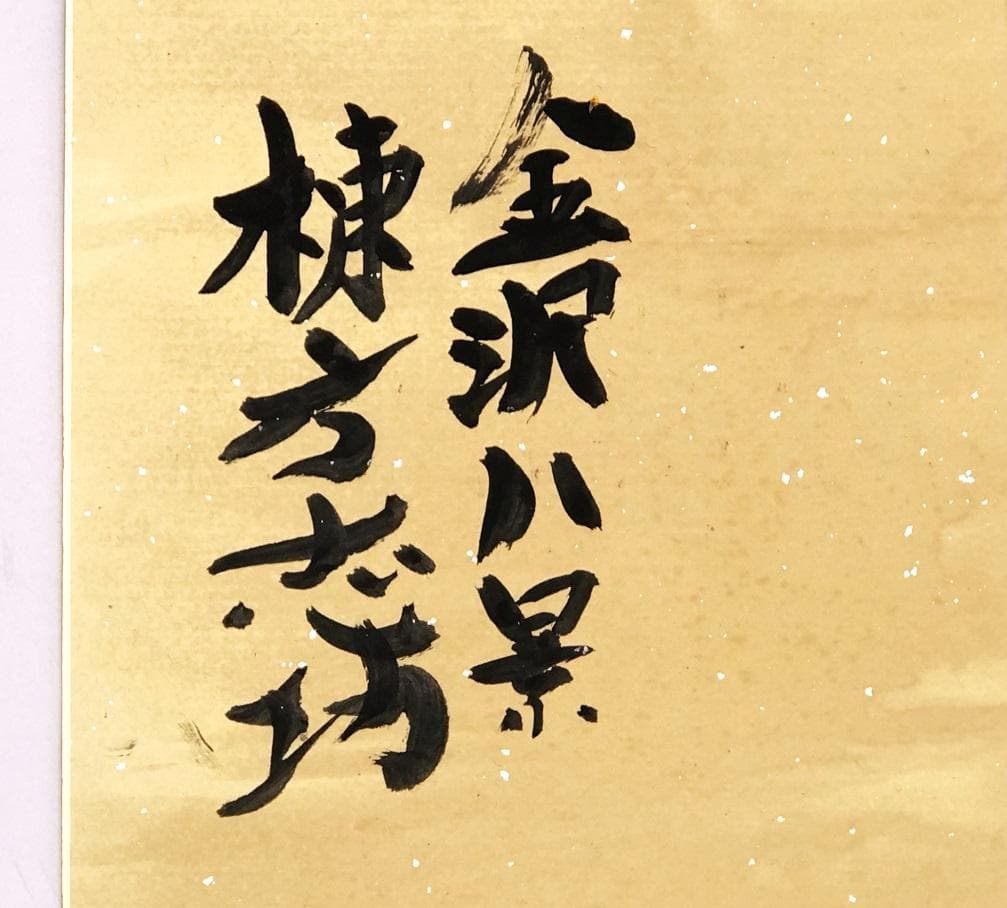 金沢八景
棟方志功